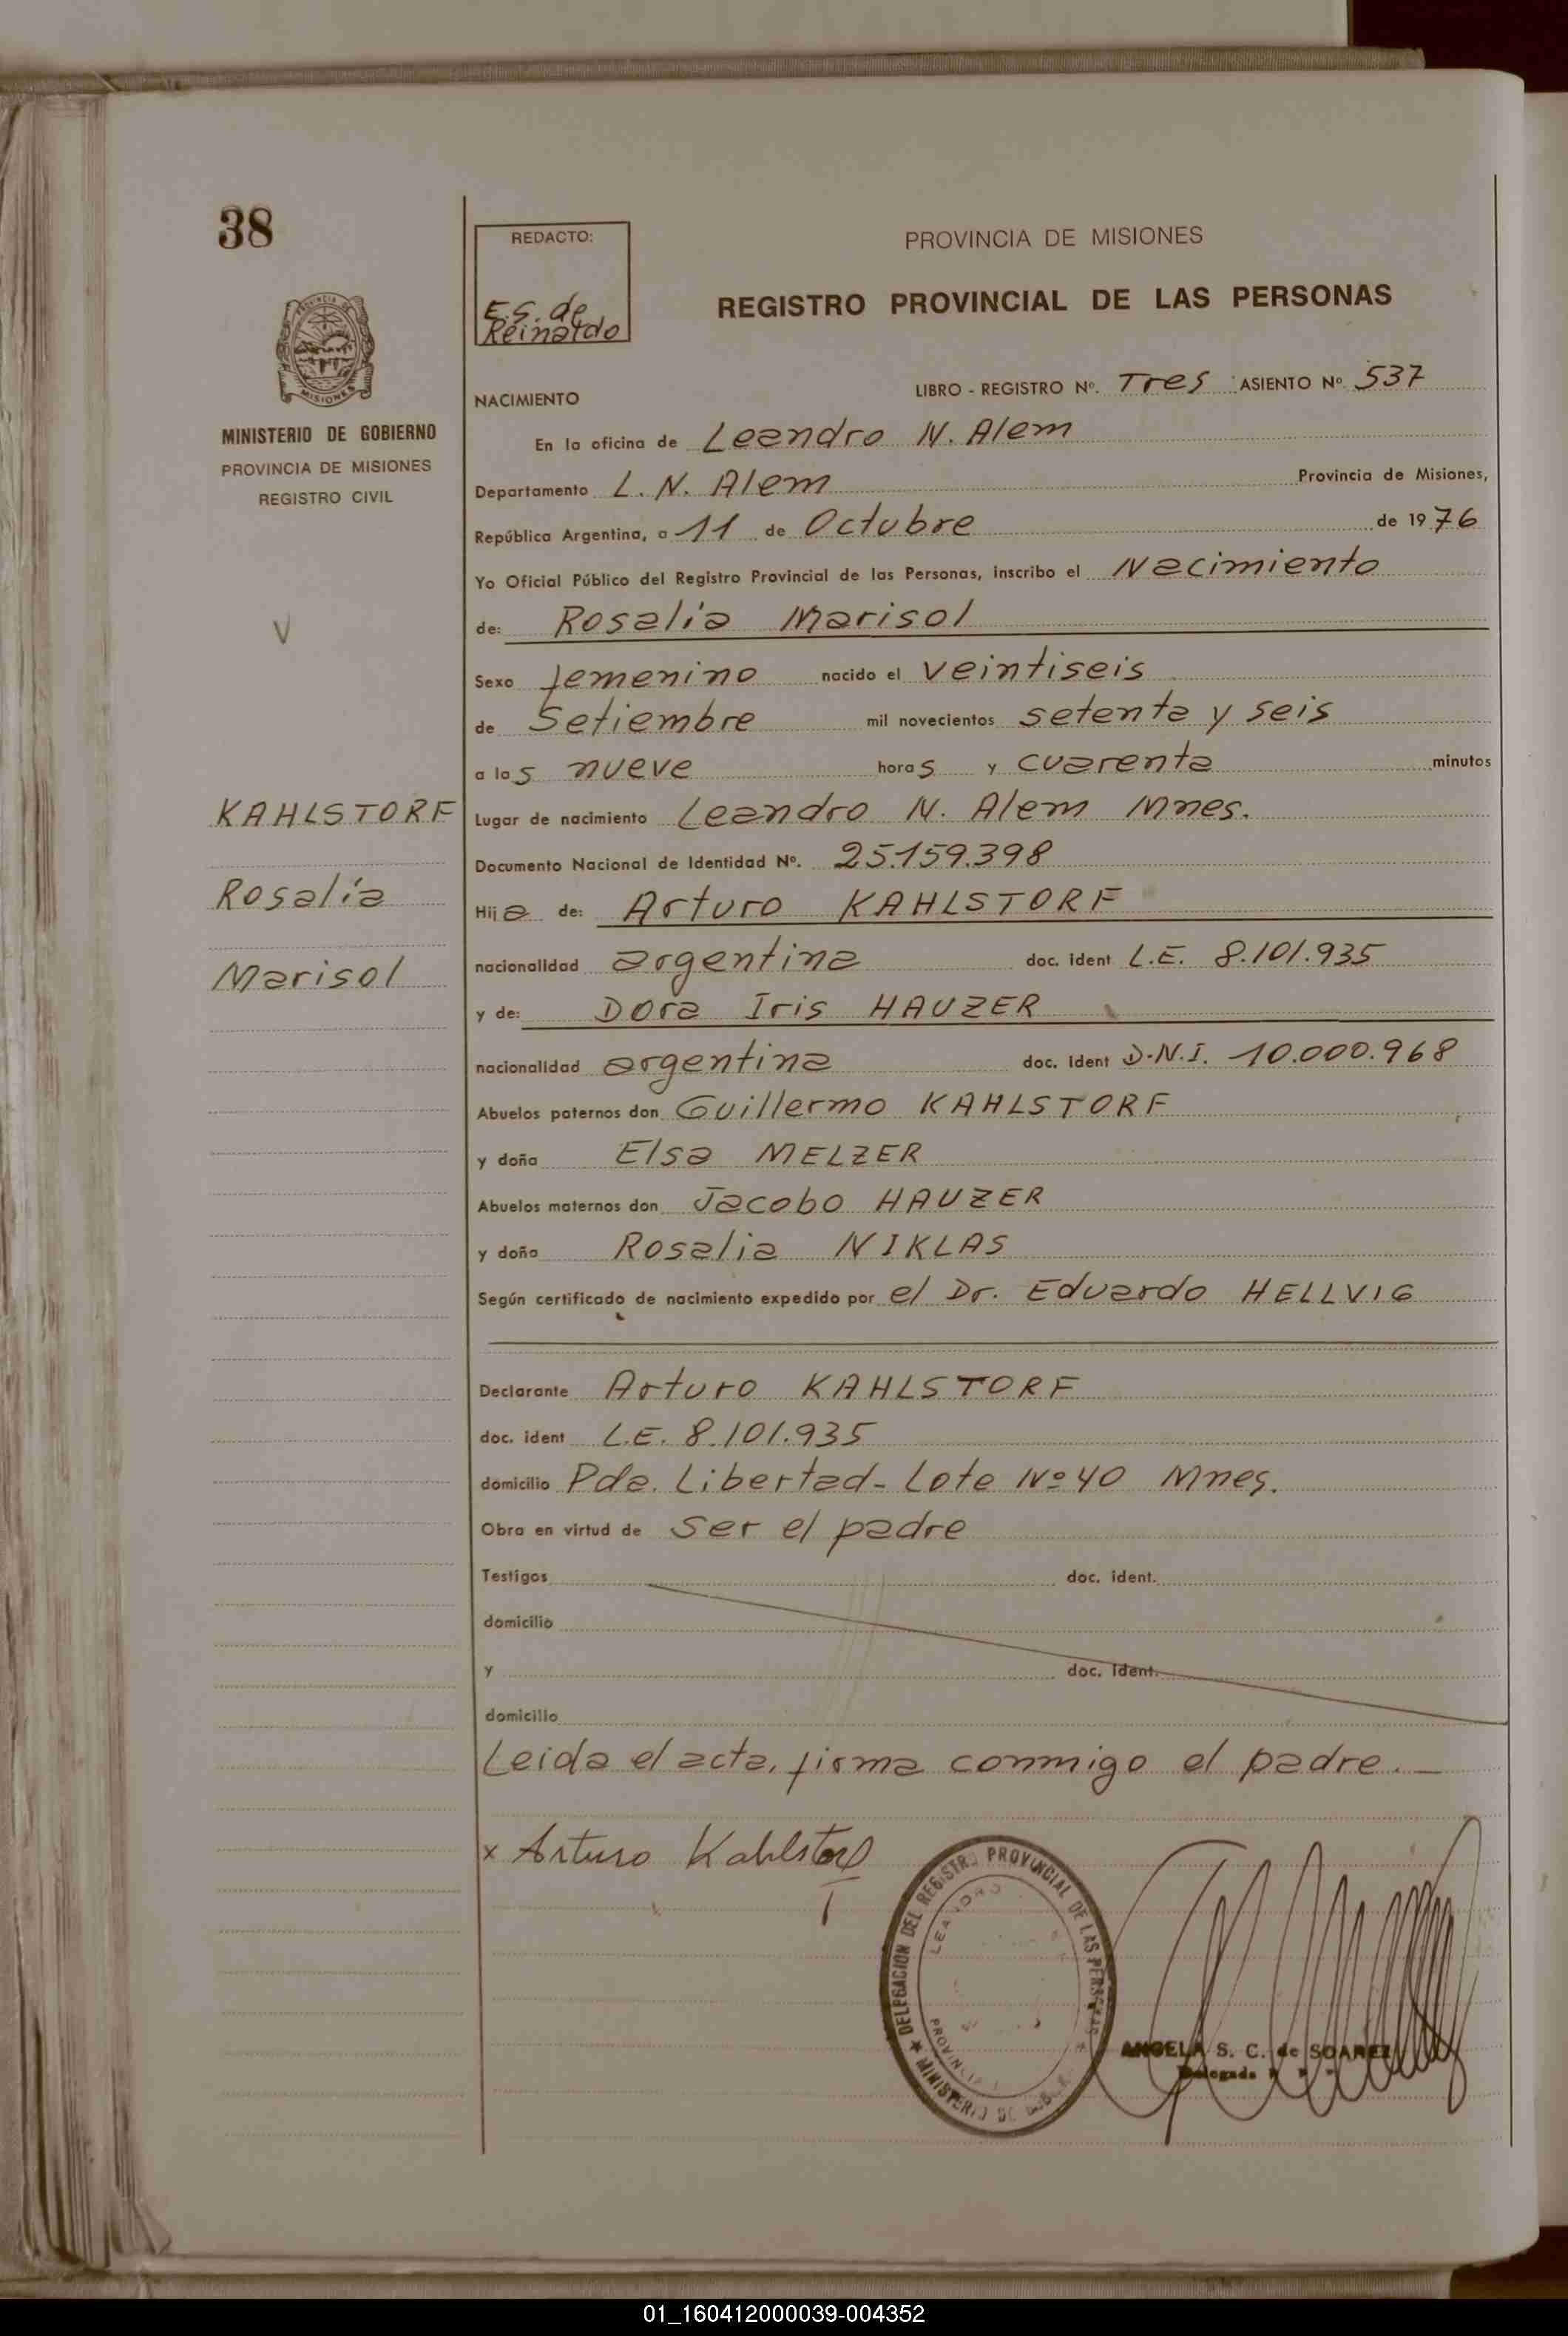 38
MINISTERIO DE GOBIERNO
PROVINCIA DE MISIONES
REGISTRO CIVIL
V
KAHLSTORF
Rosalía
Marisol
REDACTO:
E.S. de
Reinaldo
PROVINCIA DE MISIONES
REGISTRO PROVINCIAL DE LAS PERSONAS
NACIMIENTO LIBRO - REGISTRO Nº. Tres ASIENTO Nº 537
En la oficina de Leandro N. Alem
Departamento L. N. Alem Provincia de Misiones,
República Argentina, a 11 de Octubre de 1976
Yo Oficial Público del Registro Provincial de las Personas, inscribo el Nacimiento
de: Rosalía Marisol
Sexo femenino nacido el veintiseis
de Setiembre mil novecientos setenta y seis
a las nueve horas y cuarenta minutos
Lugar de nacimiento Leandro N. Alem Mnes.
Documento Nacional de Identidad Nº. 25.159.398
Hija de: Arturo KAHLSTORF
nacionalidad argentina doc. ident L.E. 8.101.935
y de: Dora Iris HAUZER
nacionalidad argentina doc. ident D.N.I. 10.000.968
Abuelos paternos don Guillermo KAHLSTORF
y doña Elsa MELZER
Abuelos maternos don Jacobo HAUZER
y doña Rosalia NIKLAS
Según certificado de nacimiento expedido por el Dr. Eduardo HELLVIG
Declarante Arturo KAHLSTORF
doc. ident L.E. 8.101.935
domicilio Pda. Libertad- Lote Nº 40 Mnes.
Obra en virtud de ser el padre
Testigos doc. ident.
domicilio
y doc. ident.
domicilio
Leida el acta, firma conmigo el padre.-
x Arturo Kahlstorf
DELEGACION DEL REGISTRO PROVINCIAL DE LAS PERSONAS
LEANDRO
PROVINCIA
MINISTERIO DE
ANGELA S. C. de SOAREZ
Delegada
01_160412000039-004352